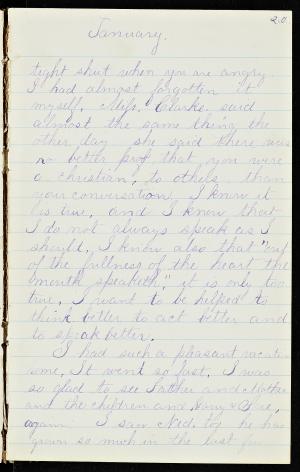 20
January.
tight shut when you are angry
I had almost forgotten it
myself, Miss. Clarke said
almost the same thing the
other day she said there was
no better prof that you were
a christian, to others than
your conversation I know it
is true, and I know that
I do not always speak as I
should, I know also that "out
of the fullness of the heart the
mouth speaketh," it is only too
true, I want to be helped to
think better to act better and
to speak better.
I had such a pleasant vacation
some, It went so fast, I was
so glad to see Father and Mother
and the children and and
again I saw Ned, too he has
grown so much in the last few